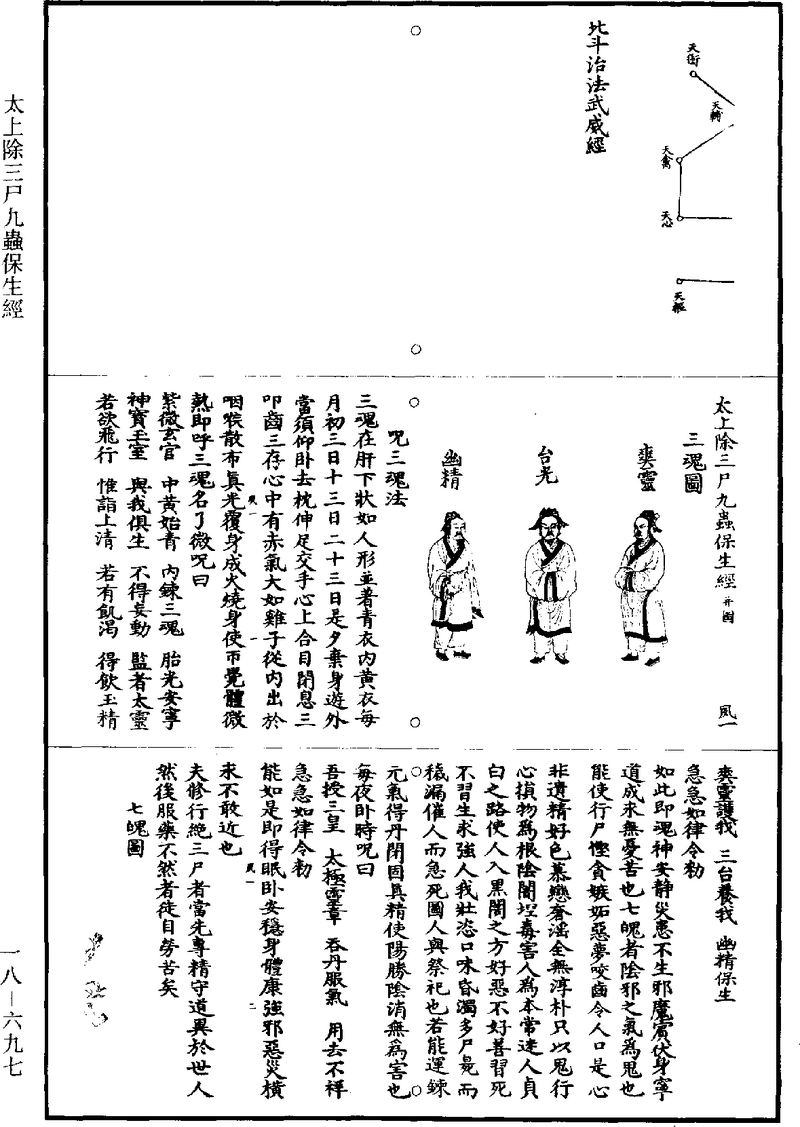 太上除三尸九蟲保生經
一八—六九七
天衝
天輔
天禽
天心
天樞
北斗治法武威經
太上除三尸九蟲保生經 并圖 夙一
三魂圖
爽靈
台光
幽精
呪三魂法
三魂在肝下狀如人形並著青衣內黃衣每
月初三日十三日二十三日是夕棄身遊外
當須仰卧去枕伸足交手心上合目閉息三
叩齒三存心中有赤氣大如雞子從內出於
咽喉散布真光覆身成火燒身使帀覺體微
熱即呼三魂名了微呪曰
紫微玄宮 中黃始青 內鍊三魂 胎光安寧
神寶玉室 與我俱生 不得妄動 監者太靈
若欲飛行 惟詣上清 若有飢渴 得飲玉精
爽靈護我 三台養我 幽精保生
急急如律令勑
如此即魂神安靜災患不生邪魔賓伏身寧
道成永無憂苦也七魄者陰邪之氣為鬼也
能使行尸慳貪嫉妬惡夢咬齒令人口是心
非遺精好色慕戀奢淫全無淳朴只以鬼行
心損物為根陰闇埋毒害人為本常迷人貞
白之路使人入黑闇之方好惡不好善習死
不習生求強人我壯恣口味昏濁多尸𣦸而
穢漏催人而急死圖人與祭祀也若能運鍊
元氣得丹閉固真精使陽勝陰消無為害也
每夜卧時呪曰
吾授三皇 太極靈章 吞丹服氣 用去不祥
急急如律令勑
能如是即得眠卧安穩身體康強邪惡災橫
永不敢近也
夫修行絶三尸者當先專精守道異於世人
然後服藥不然者徒自勞苦矣
七魄圖